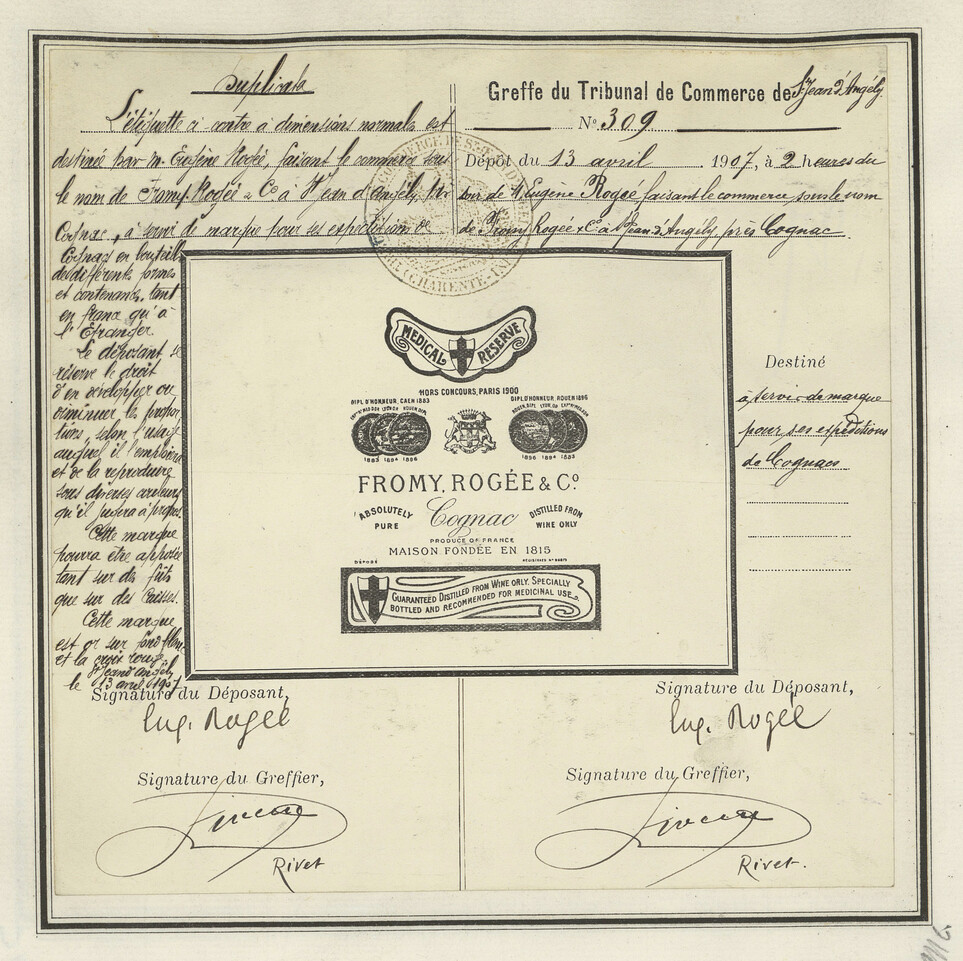 Duplicata
L'étiquette ci contre à dimensions normales est
destinée par M. Eugène Rogée, faisant le commerce sous
le nom de Fromy Rogée & Co à St Jean d'Angély, près
Cognac, à servir de marque pour ses expéditions de
Cognac en bouteilles
de différentes formes
et contenance, tant
en france qu'à
l'Étranger.
Le déposant se
réserve le droit
d'en développer ou
diminuer les propor
tions, selon l'usage
auquel il l'emploiera
et de la reproduire
sous diverses couleurs
qu'il jugera à propos
Cette marque
pourra être apposée
tant sur des fûts
que sur des caisses.
Cette marque
est or sur fond blanc
et la croix rouge
St Jean d'Angély
le 13 avril 1907
Signature du Déposant,
Eug. Rogée
Signature du Greffier,
Rivet
Greffe du Tribunal de Commerce de St Jean d'Angély
No. 309
Dépôt du 13 avril 1907, à 2 heures du
soir de M. Eugène Rogée, faisant le commerce sous le nom
de Fromy Rogée & Cie à St Jean d'Angély, près Cognac.
MEDICAL RESERVE
HORS CONCOURS, PARIS 1900
DIPL. D'HONNEUR, CAEN 1883
DIPL D'HONNEUR, ROUEN 1896
1883 1894 1896
1896 1894 1883
FROMY, ROGÉE & Co
ABSOLUTELY PURE
Cognac
DISTILLED FROM WINE ONLY
PRODUCE OF FRANCE
MAISON FONDÉE EN 1815
DÉPOSÉ
GUARANTEED DISTILLED FROM WINE ONLY. SPECIALLY
BOTTLED AND RECOMMENDED FOR MEDICINAL USE.
Destiné
à servir de marque
pour ses expéditions
de Cognacs
Signature du Déposant,
Eug. Rogée
Signature du Greffier,
Rivet.